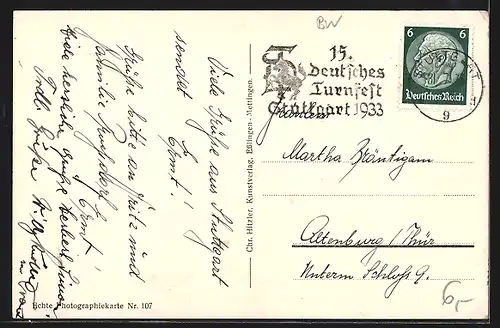 Viele Grüße aus Stuttgart
sendet
Ernst!
Grüße bitte an Fritz und
Familie
Ernst!
Viele herzliche Grüße Herbert
Chr. Hitzler, Kunstverlag, Eßlingen-Mettingen.
Echte Photographiekarte Nr. 107
BW
15.
Deutsches
Turnfest
Stuttgart 1933
6 6
Deutsches Reich
9
Martha Bräutigam
Altenburg / Thür
Unterm Schloß 9.
6,-